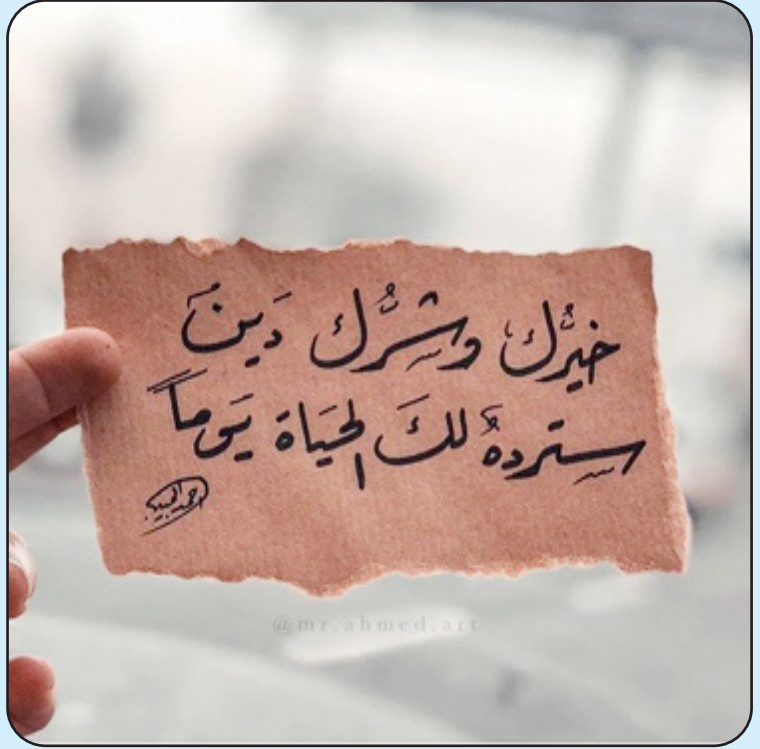 خيرُك وشرُّك دَين
ستردهُ لكَ الحَياة يَوماً
@mr.ahmed.art